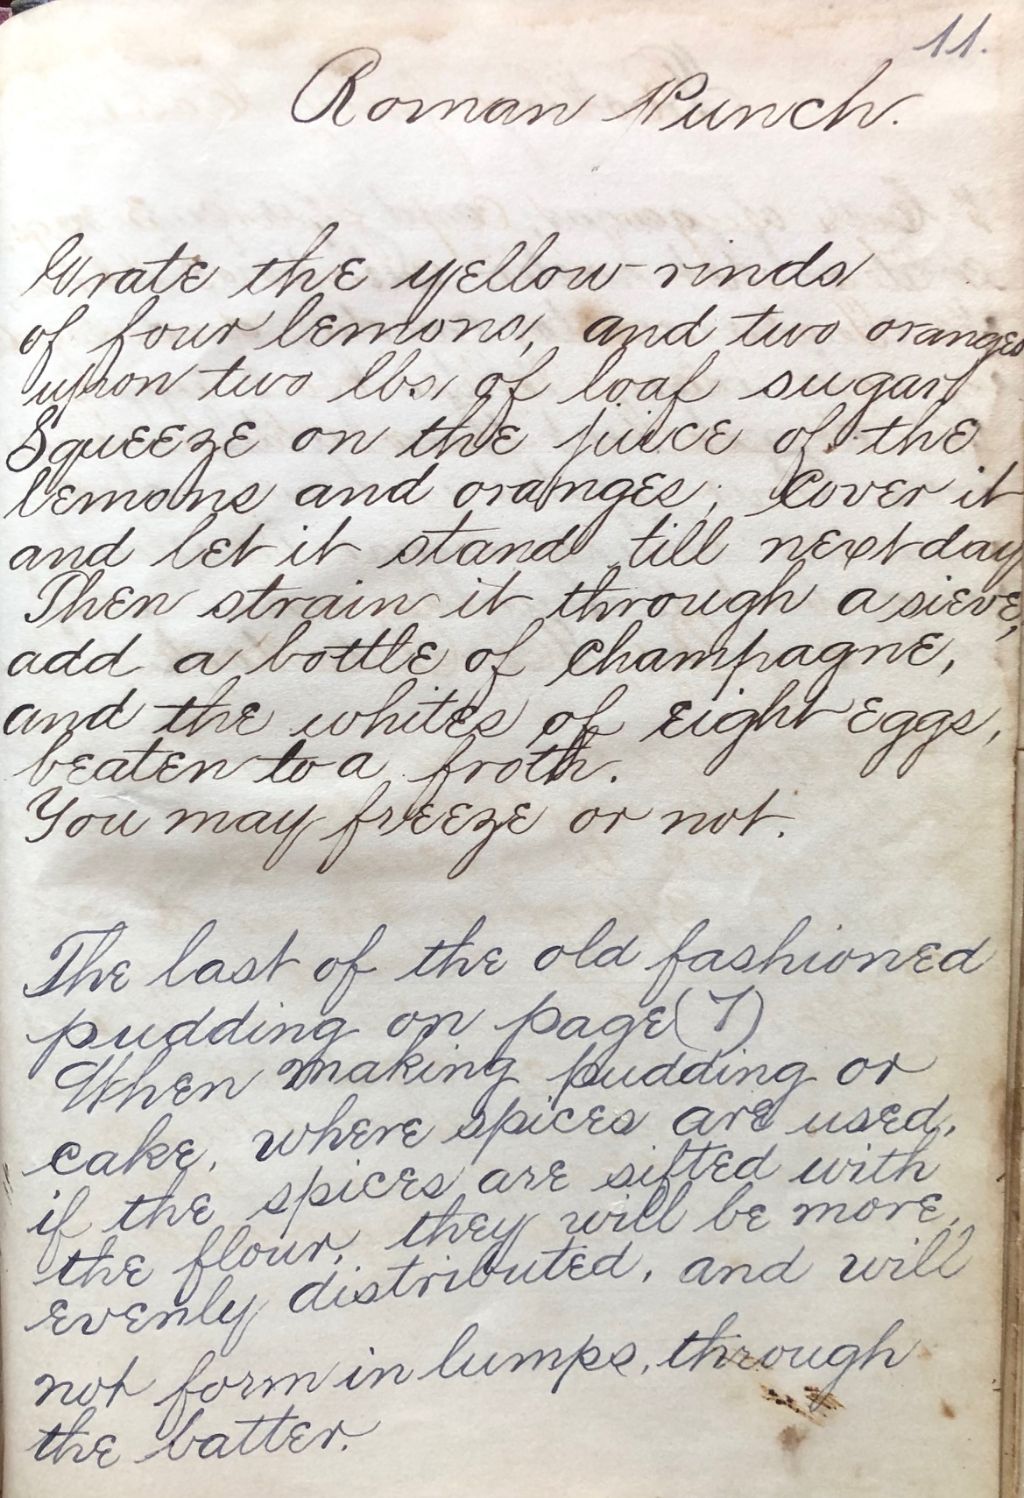 11.
Roman Punch.
Grate the yellow rinds
of four lemons, and two oranges
upon two lbs of loaf sugar,
Squeeze on the juice of the
lemons and oranges; Cover it
and let it stand till next day
Then strain it through a sieve,
add a bottle of champagne,
and the whites of eight eggs,
beaten to a froth.
You may freeze or not.
The last of the old fashioned
pudding on page (7)
When making pudding or
cake, where spices are used,
if the spices are sifted with
the flour, they will be more
evenly distributed, and will
not form in lumps, through
the batter.